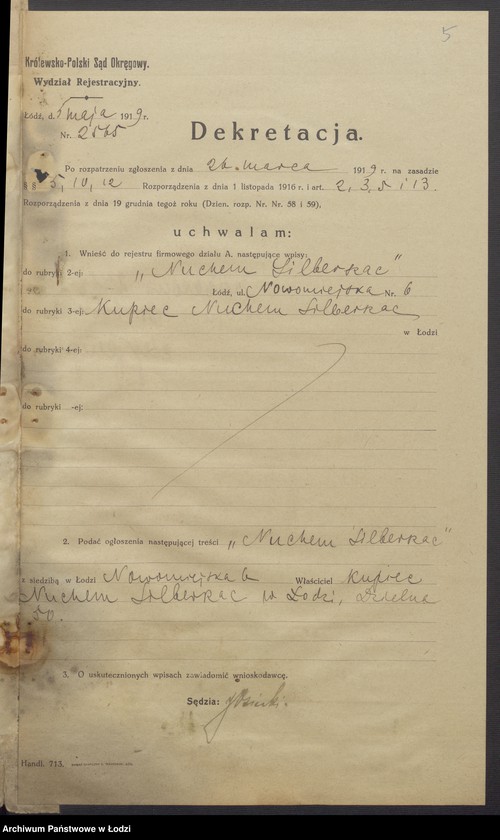 5
Królewsko-Polski Sąd Okręgowy.
Wydział Rejestracyjny.
Łódź, d. 5 maja 1919 r.
Nr. 2565
Dekretacja.
Po rozpatrzeniu zgłoszenia z dnia 26. marca 1919 r. na zasadzie
§ § 5, 10, 12 Rozporządzenia z dnia 1 listopada 1916 r. i art. 2, 3, 5 i 13.
Rozporządzenia z dnia 19 grudnia tegoż roku (Dzien. rozp. Nr. Nr. 58 i 59),
uchwalam:
1. Wnieść do rejestru firmowego działu A. następujące wpisy:
do rubryki 2-ej: „Nuchem Silberszac"
Łódź, ul. Nowomiejska Nr. 6
do rubryki 3-ej: Kupiec Nuchem Silberszac
w Łodzi
do rubryki 4-ej:
do rubryki -ej:
2. Podać ogłoszenia następującej treści „Nuchem Silberszac"
z siedzibą w Łodzi Nowomiejska 6 Właściciel kupiec
Nuchem Silberszac w Łodzi, Dzielna
50.
3. O uskutecznionych wpisach zawiadomić wnioskodawcę.
Sędzia:
Handl. 713.
Archiwum Państwowe w Łodzi